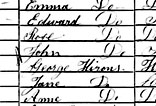 Emma Do
Edward Do
Rose Do
John Do
George Hirons
Jane Do
Anne Do